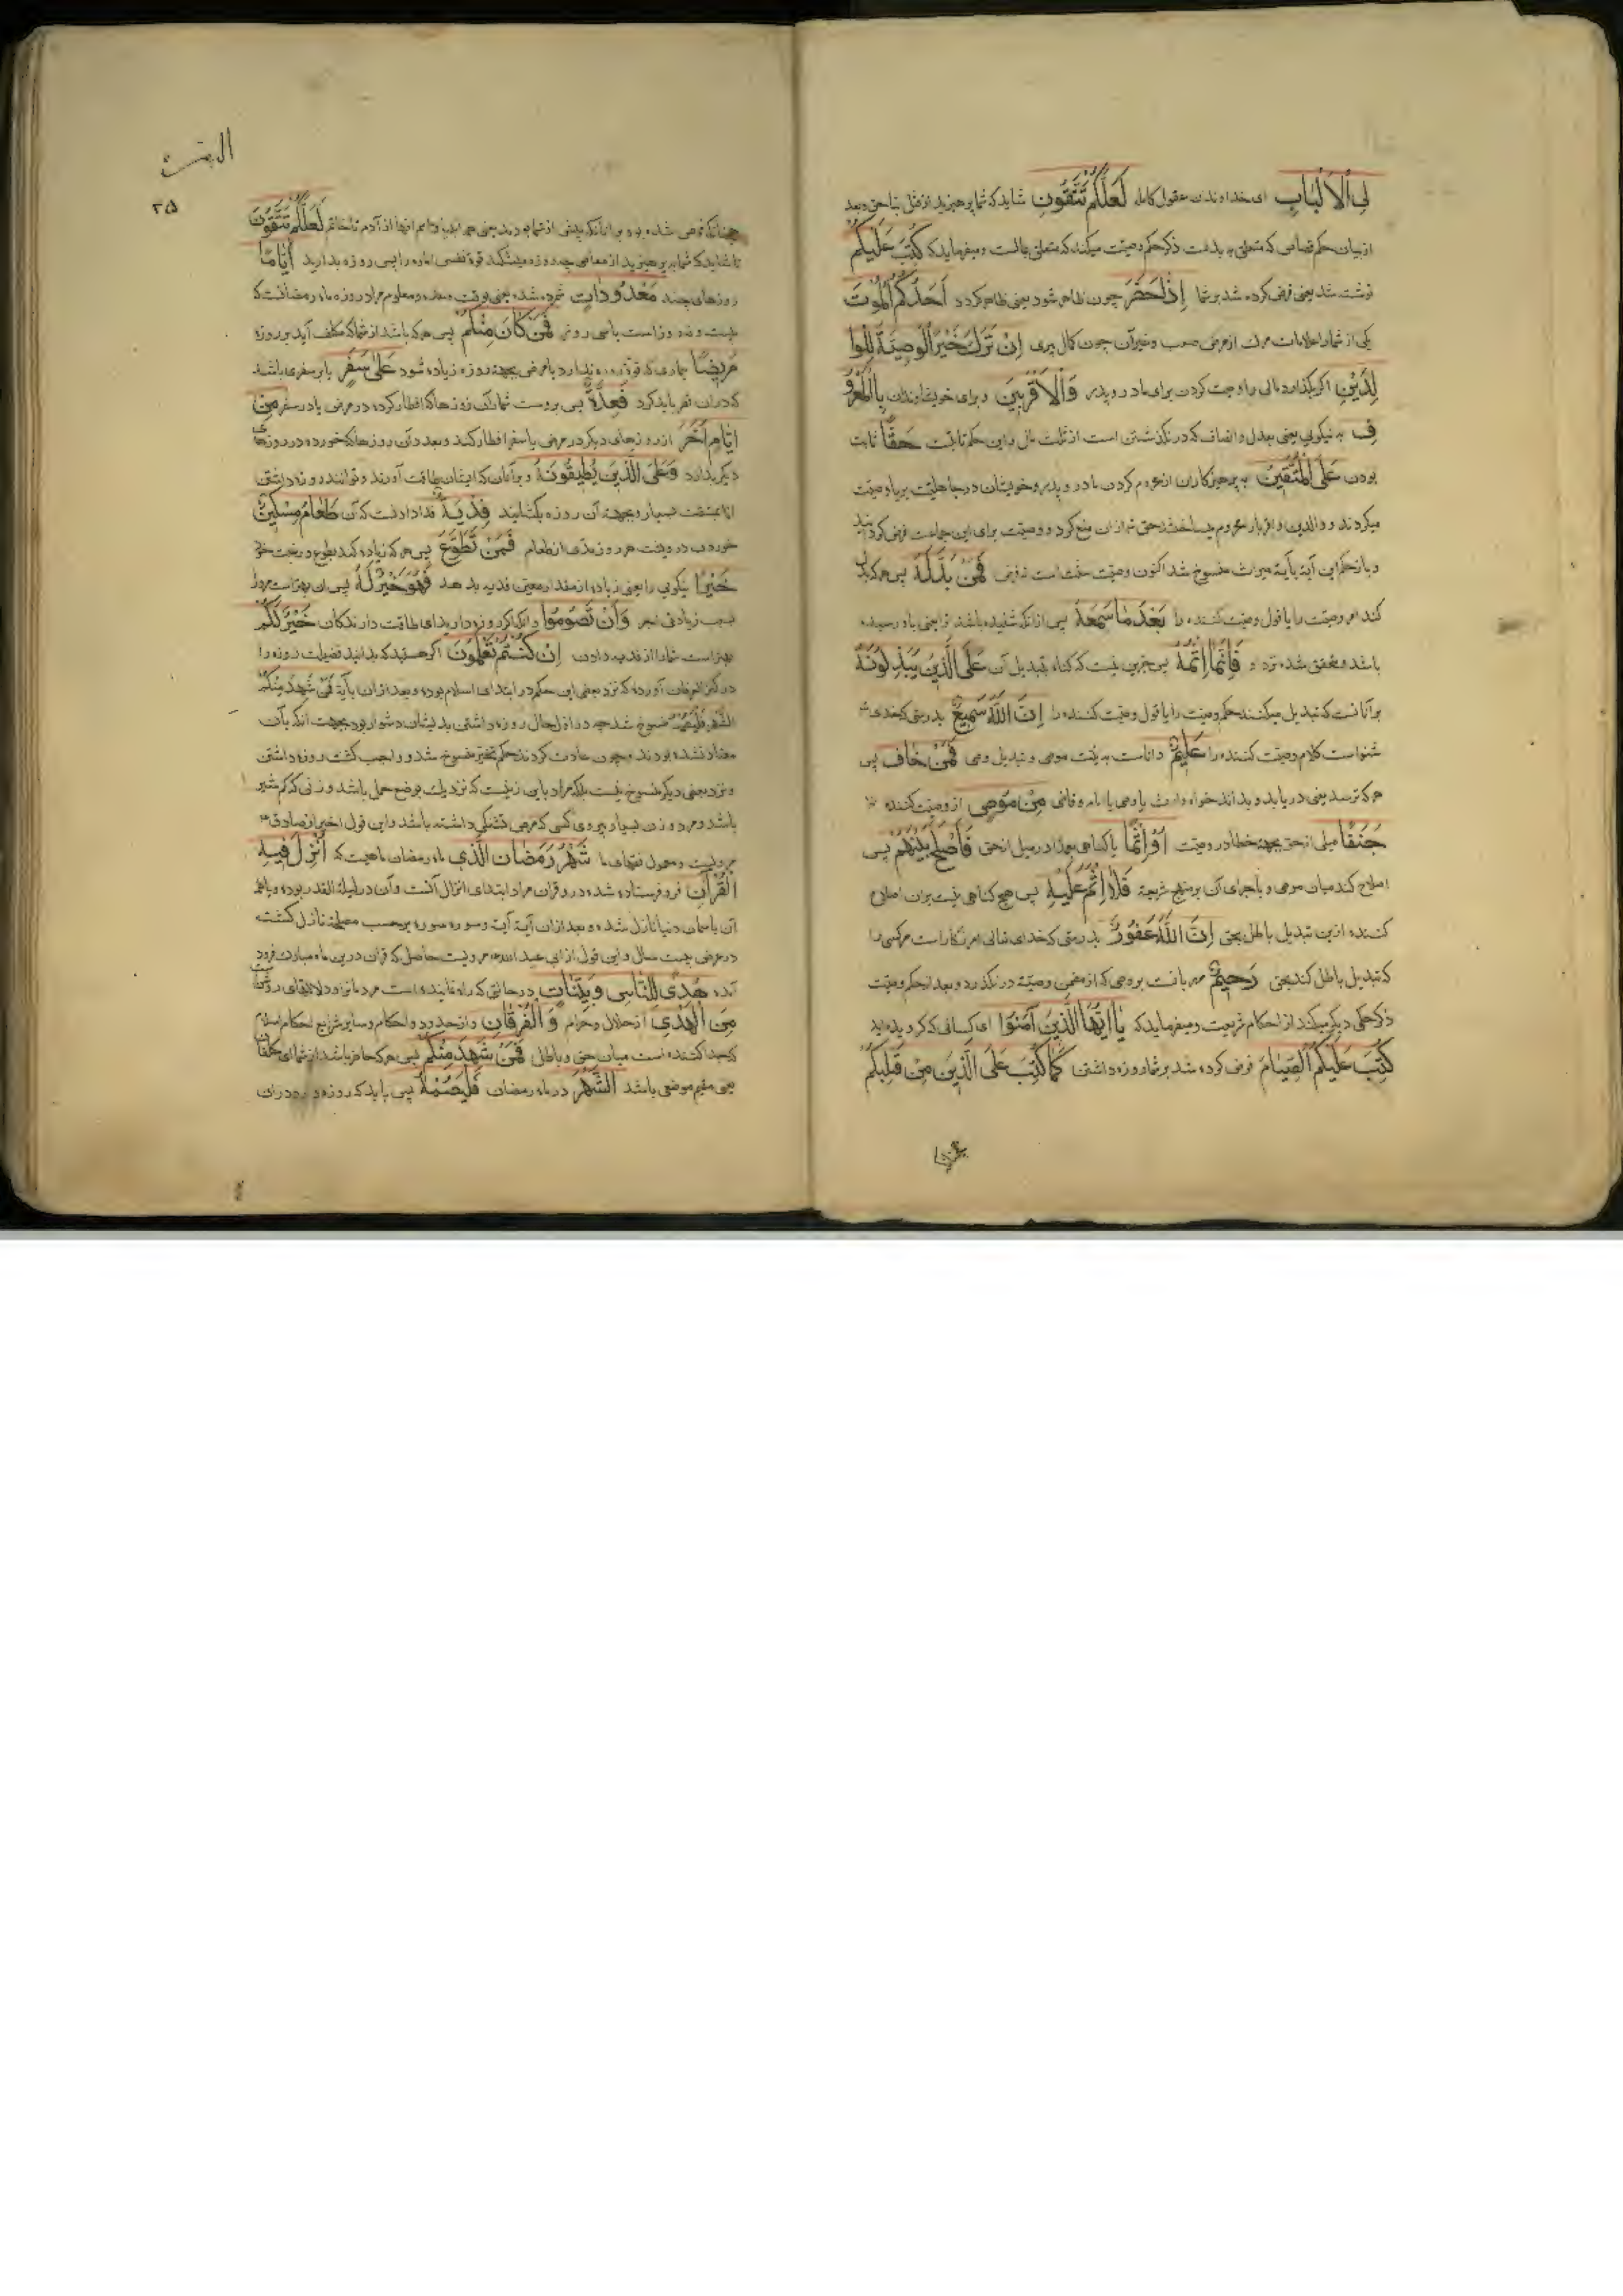 لِی الْاَلْبَابِ ای خداوندان عقول کامله لَعَلَّکُمْ تَتَّقُونَ شاید که شما بپرهیزید از قتل بناحق و بعد
از بیان حکم قصاص که متعلق به بدنست ذکر حکم وصیت میکند که متعلق بمالست و میفرماید که کُتِبَ عَلَیْکُمْ
نوشته شد یعنی فرض کرده شد بر شما اِذَا حَضَرَ چون ظاهر شود یعنی ظاهر کردد اَحَدَکُمُ الْمَوْتُ
یکی از شما را علامات مرک از مرض صعب و غیر آن چون کمال پیری اِنْ تَرَکَ خَیْرًا الْوَصِیَّةُ لِلْوَا
لِدَیْنِ اکر بکذارد مالی را وصیت کردن برای مادر و پدر وَالْاَقْرَبِینَ و برای خویشاوندان بِالْمَعْرُو
فِ به نیکویی یعنی بعدل و انصاف که در نکذشتن است از ثلث مال و این حکم ثابتست حَقًّا ثابت
بودن عَلَی الْمُتَّقِینَ بر پرهیزکاران از محروم کردن مادر و پدر و خویشان در جاهلیت بریا وصیت
میکردند و والدین و اقربا را محروم میساختند حق تم ازان منع کرد و وصیت برای این جماعت فرض کردانید
و باز حکم این آیة بآیة میراث منسوخ شد اکنون وصیت سنت است نه فرض فَمَنْ بَدَّلَهُ پس هر که بدل
کند امر وصیت را یا قول وصیت کننده را بَعْدَ مَا سَمِعَهُ پس از آنکه شنیده باشد انرا یعنی باو رسیده
باشد و محقق شده نزد او فَاِنَّمَا اِثْمُهُ پس جز این نیست که کناه تبدیل آن عَلَی الَّذِینَ یُبَدِّلُونَهُ
بر آنانست که تبدیل میکنند حکم وصیت را یا قول وصیت کننده را اِنَّ اللّٰهَ سَمِیعٌ بدرستی که خدای
شنواست کلام وصیت کننده را عَلِیمٌ داناست به نیت موصی و تبدیل وصی فَمَنْ خَافَ پس
هر که ترسد یعنی دریابد و بداند خواه وارث یا وصی یا امام و قاضی مِنْ مُوصٍ از وصیت کننده
جَنَفًا میلی از حق بجهة خطا در وصیت اَوْ اِثْمًا یا کناهی بعمد در میل از حق فَاَصْلَحَ بَیْنَهُمْ پس
اصلاح کند میان موصی و باجرای آن بر منهج شریعة فَلَا اِثْمَ عَلَیْهِ پس هیچ کناهی نیست بران اصلاح
کننده ازین تبدیل باطل بحق اِنَّ اللّٰهَ غَفُورٌ بدرستی که خدای تعالی امرزکار است مر کسی را
که تبدیل باطل کند بحق رَحِیمٌ مهربانست بر وصی که از مضمون وصیة در نکذرد و بعد از حکم وصیت
ذکر حکمی دیگر میکند از احکام شریعت و میفرماید که یَا اَیُّهَا الَّذِینَ آمَنُوا ای کسانی که کرویده اید
کُتِبَ عَلَیْکُمُ الصِّیَامُ فرض کرده شد بر شما روزه داشتن کَمَا کُتِبَ عَلَی الَّذِینَ مِنْ قَبْلِکُمْ
البقرة
۲۵
چنانکه فرض شده بود بر آنانکه پیش از شما بودند یعنی همه انبیا و امم انها از آدم تا خاتم لَعَلَّکُمْ تَتَّقُونَ
تا شاید که شما بپرهیزید از معاصی چه روزه میشکند قوة نفس اماره را پس روزه بدارید اَیَّامًا
روزهای چند مَعْدُودَاتٍ شمرده شده یعنی بوقت معدود و معلوم مراد روزه ماه رمضانست که
بیست و نه روز است یا سی روز فَمَنْ کَانَ مِنْکُمْ پس هر که باشد از شما که مکلف آید بر روزه
مَرِیضًا بیماری که قوة روزه ندارد یا مرض بجهة روزه زیاده شود عَلٰی سَفَرٍ یا بر سفری باشد
که در ان قصر باید کرد فَعِدَّةٌ پس بروست شمار آن روزها که افطار کرده در مرض یا در سفر مِنْ
اَیَّامٍ اُخَرَ از روزهای دیکر در مرض یا سفر افطار کند و بعدد آن روزها که خورده در روزهای
دیکر بدارد وَعَلَی الَّذِینَ یُطِیقُونَهُ و بر آنان که ایشان طاقت آورند و توانند روزه داشتن
اما بمشقت بسیار و بجهة آن روزه بکشایند فِدْیَةٌ فدا دادنست که آن طَعَامُ مِسْکِینٍ
خوردن درویشت هر روز مدی از طعام فَمَنْ تَطَوَّعَ پس هر که زیاده کند بطوع و رغبت خود
خَیْرًا نیکویی را یعنی زیاده از مقدار معین فدیه بدهد فَهُوَ خَیْرٌ لَهُ پس ان بهتر است مر او را
بسبب زیادتی اجر وَاَنْ تَصُومُوا و آنکه اکر روزه دارید ای طاقت دارندکان خَیْرٌ لَکُمْ
بهتر است شما را از فدیه دادن اِنْ کُنْتُمْ تَعْلَمُونَ اکر هستید که بدانید فضیلت روزه را
در کنز العرفان آورده که نزد بعضی این حکم در ابتدای اسلام بود و بعد ازان بآیة فَمَنْ شَهِدَ مِنْکُمُ
الشَّهْرَ فَلْیَصُمْهُ منسوخ شد چه در اول حال روزه داشتن بدیشان دشوار بود بجهت انکه بآن
معتاد نشده بودند و چون عادت کردند حکم تخییر منسوخ شد و واجب کشت روزه داشتن
و نزد بعضی دیکر منسوخ نیست بلکه مراد باین زنیست که نزدیک بوضع حمل باشد و زنی که کم شیر
باشد و مرد و زن بسیار پیر و ای کسی که مرض تشنکی داشته باشد و این قول اخیر از صادق
مرویست و معمول فقهای ما شَهْرُ رَمَضَانَ الَّذِی ماه رمضان ماهیست که اُنْزِلَ فِیهِ
الْقُرْآنُ فرو فرستاده شده در و قران مراد ابتدای انزال آنست و آن در لیلة القدر بوده و یا همه
آن باسمان دنیا نازل شده و بعد ازان آیة آیة و سوره سوره بر حسب مصلحة نازل کشته
در عرض بیست سال و این قول از ابی عبد الله مرویست حاصل که قران درین ماه مبارک فرود
آمده هُدًی لِلنَّاسِ وَبَیِّنَاتٍ در حالتی که راه نماینده است مردمانرا و دلالتهای روشن
مِنَ الْهُدٰی از حلال و حرام وَالْفُرْقَانِ و از حدود و احکام و سایر شرایع احکام اسلام
که جدا کننده است میان حق و باطل فَمَنْ شَهِدَ مِنْکُمُ پس هر که حاضر باشد از شما ای مکلفان
یعنی مقیم موضعی باشد الشَّهْرَ در ماه رمضان فَلْیَصُمْهُ پس باید که روزه دارد در ان